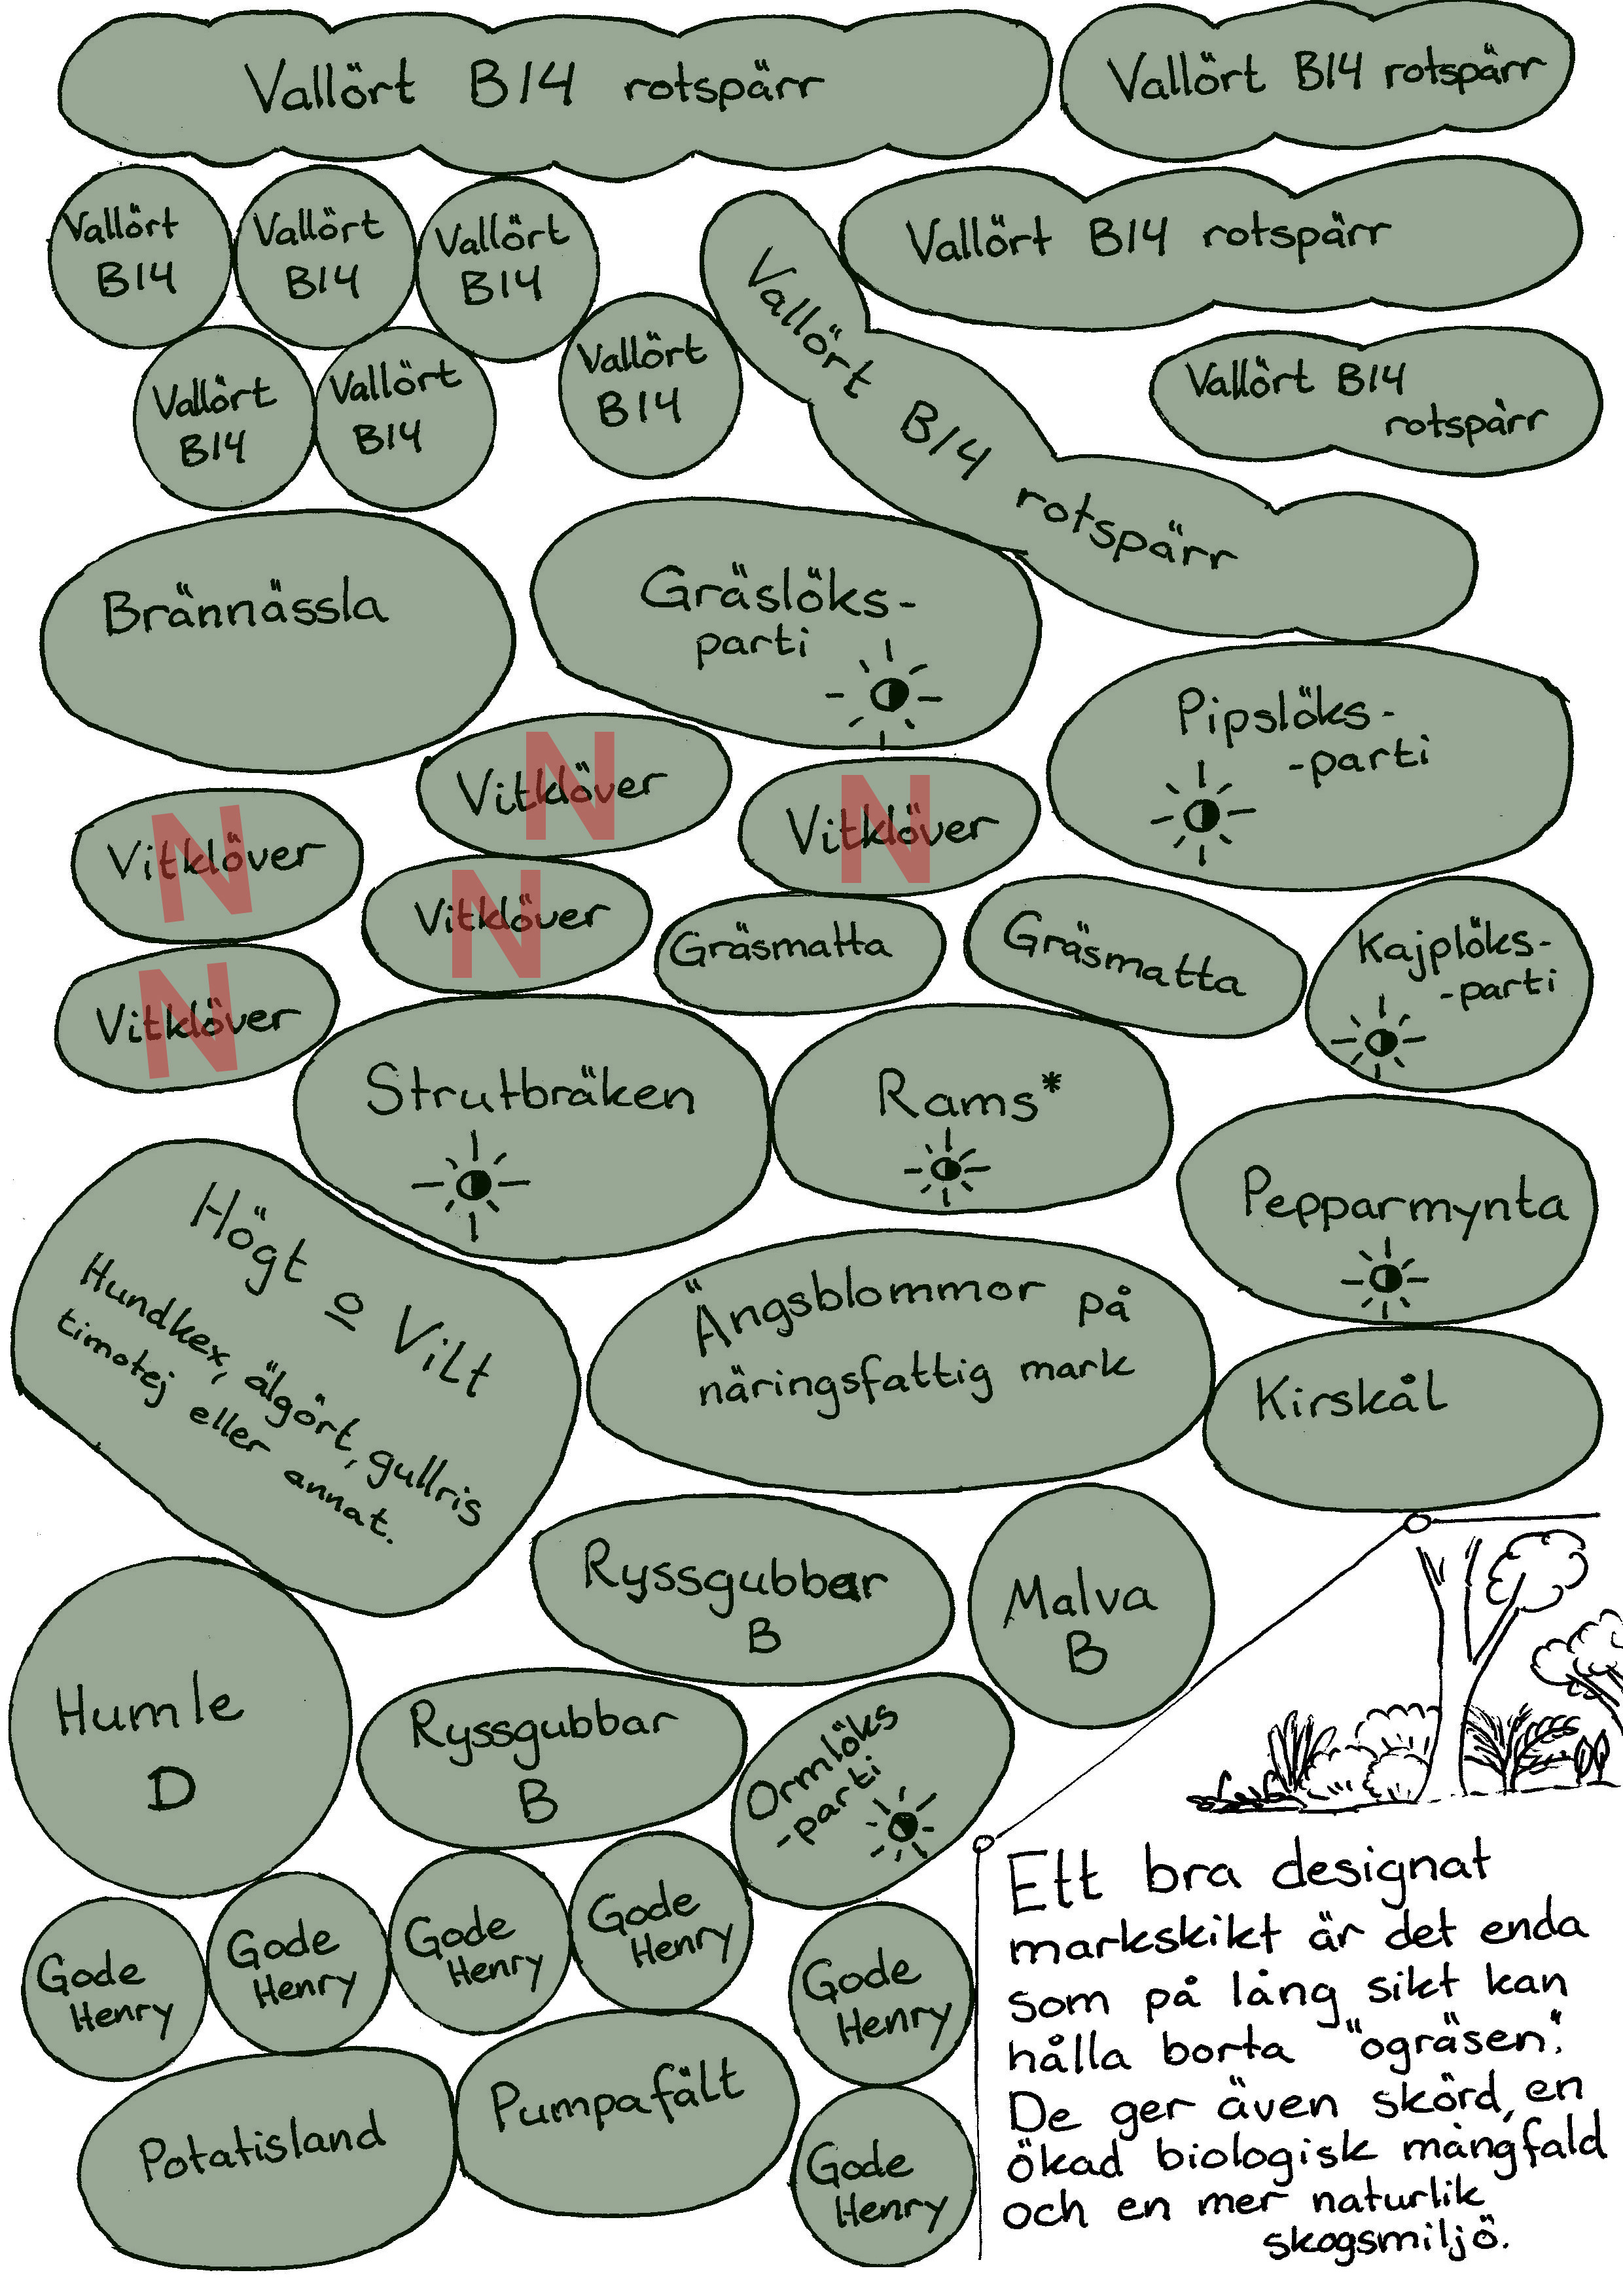 Vallört B14 rotspärr
Vallört B14 rotspärr
Vallört
B14
Vallört
B14
Vallört
B14
Vallört B14 rotspärr
Vallört B14 rotspärr
Vallört
B14
Vallört B14
rotspärr
Vallört
B14
Vallört
B14
Brännässla
Gräslöks-
parti
Pipslöks-
-parti
Vitklöver
N
Vitklöver
N
Vitklöver
N
Vitklöver
N
Gräsmatta
Gräsmatta
Kajplöks-
-parti
Vitklöver
N
Strutbräken
Rams*
Pepparmynta
Högt o Vilt
Hundkex, älgört, gullris
timotej eller annat.
Ängsblommor på
näringsfattig mark
Kirskål
Ryssgubbar
B
Malva
B
Humle
D
Ryssgubbar
B
Ormlöks
-parti
Gode
Henry
Gode
Henry
Gode
Henry
Gode
Henry
Gode
Henry
Potatisland
Pumpafält
Gode
Henry
Ett bra designat
markskikt är det enda
som på lång sikt kan
hålla borta "ogräsen".
De ger även skörd, en
ökad biologisk mångfald
och en mer naturlik
skogsmiljö.